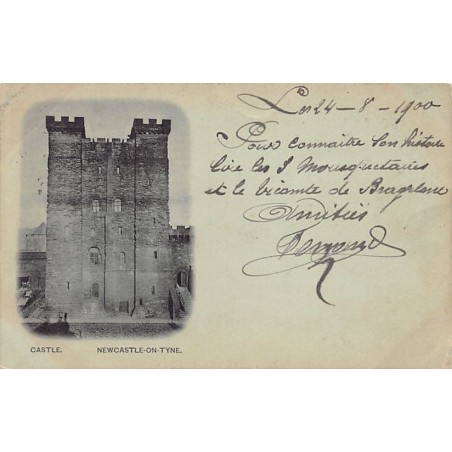 Les 24 - 8 - 1900
Pour connaître son histoire
lire les 3 Mousquetaires
et le vicomte de Bragelone
Amitiés
CASTLE. NEWCASTLE-ON-TYNE.